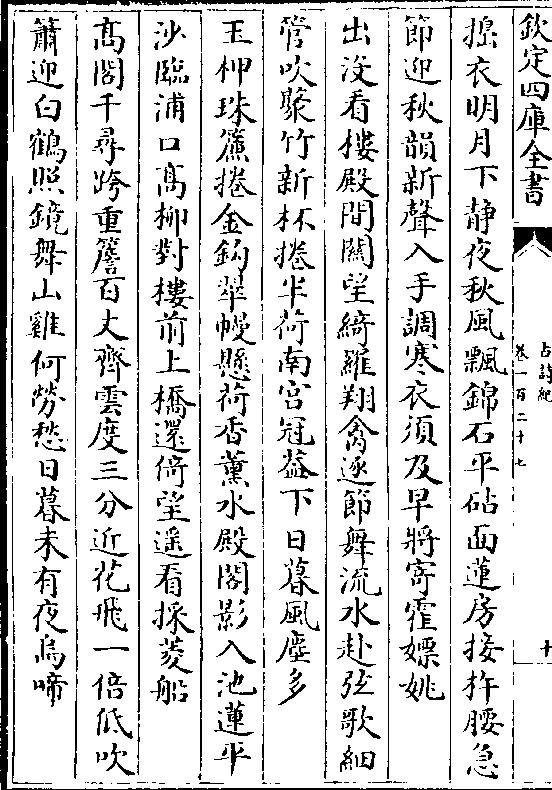 欽定四庫全書
古詩紀
卷一百二十七
十
搗衣明月下静夜秋風飄錦石平砧面蓮房接杵腰急
節迎秋韻新聲入手調寒衣須及早將寄霍嫖姚
出没看樓殿間關望綺羅翔禽逐節舞流水赴弦歌細
管吹藂竹新杯捲半荷南宫冠蓋下日暮風塵多
玉柙珠簾捲金鈎翠幔懸荷香薫水殿閣影入池蓮平
沙臨浦口髙柳對樓前上橋還倚望遥看採菱船
髙閣千尋跨重簷百丈齊雲度三分近花飛一倍低吹
簫迎白鶴照鏡舞山雞何勞愁日暮未有夜烏啼